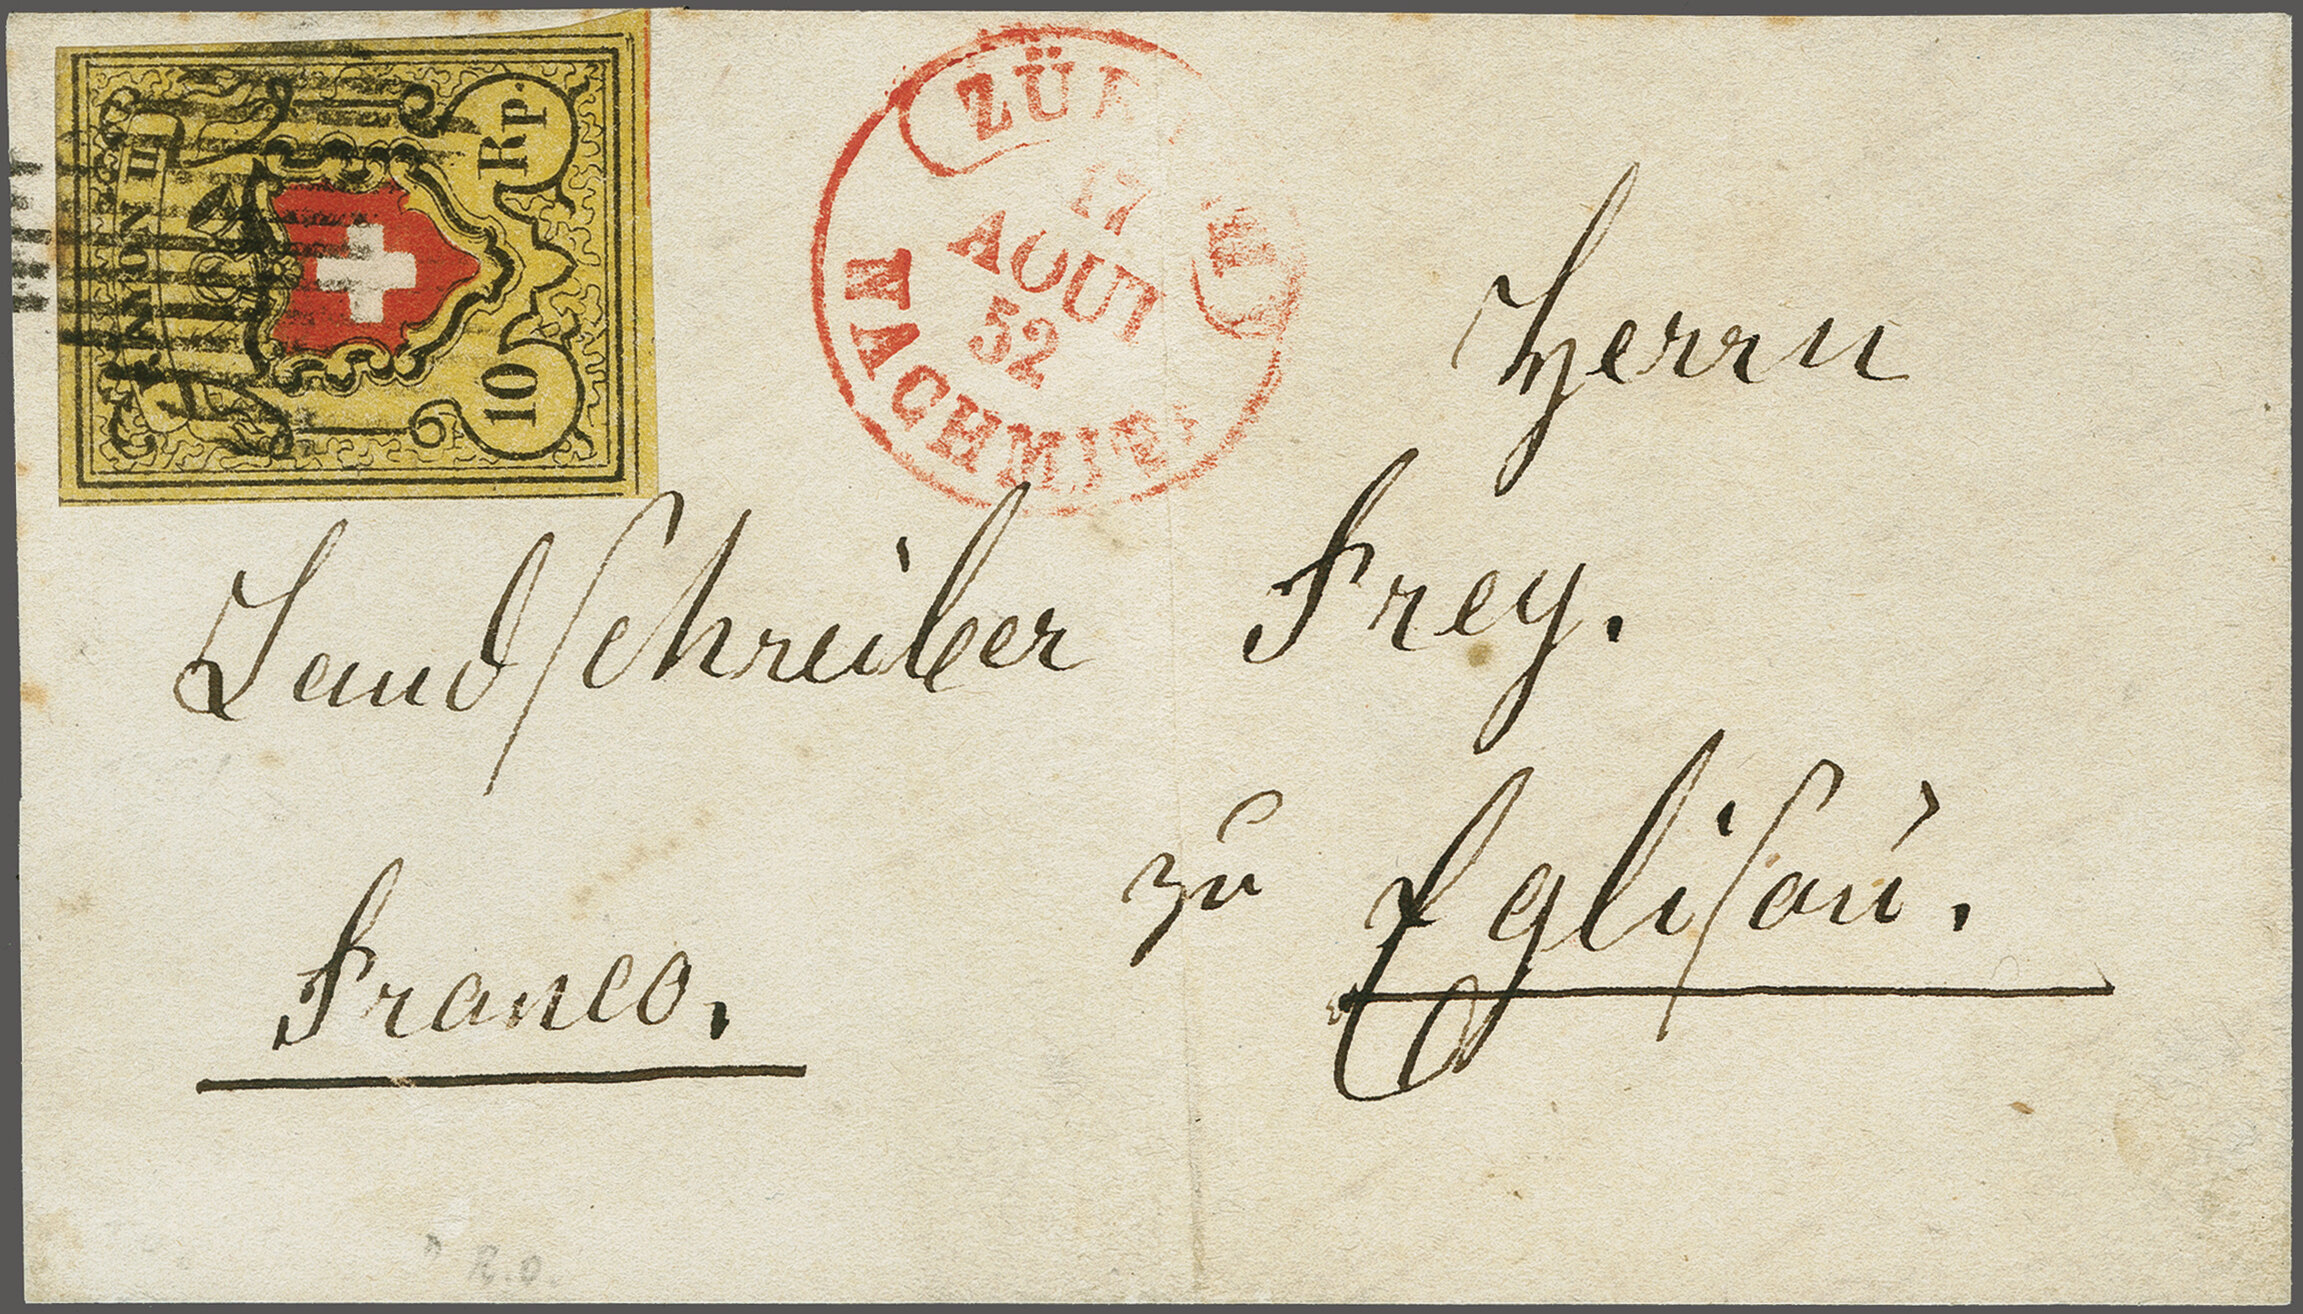 RAYON II
10 Rp.
ZÜR
17
AOUT
52
NACHMIT
Herrn
Landschreiber Frey.
zu Eglisau.
Franco.
R.O.